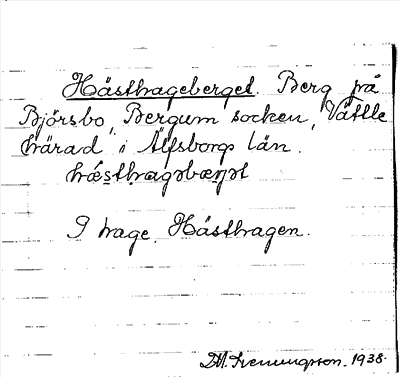 Hästhageberget. Berg på
Björsbo, Bergum socken, Vättle
härad i Älfsborgs län.
hǽsthagəbærjət
I hage, Hästhagen.
1938.